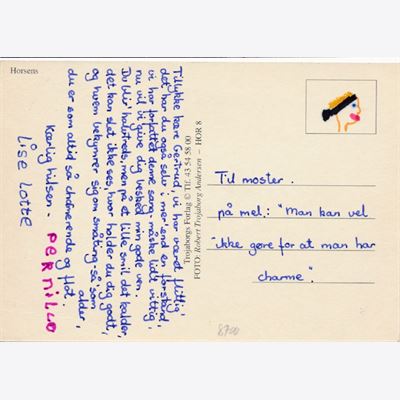 Horsens
Tillykke kære Gertrud, vi har været flittig',
det har du også selv; mer' end en forstand,
vi har forfattet denne sang, måske lidt vittig,
nu vil vi give dig besked min gode ven.
Du bli'r halvtreds, men på et lille smil det kalder,
det kan slet ikke ses, hvor holder du dig godt,
og hvem bekymrer sig om småting så som
alder,
du er som altid så charmerende og flot.
Kærlig hilsen - PERNILLE
Lise Lotte
Trojaborgs Forlag © Tlf. 43 54 58 00
FOTO: Robert Trojaborg Andersen – HOR 8
Til moster.
på mel.: "Man kan vel
ikke gøre for at man har
charme".
8700